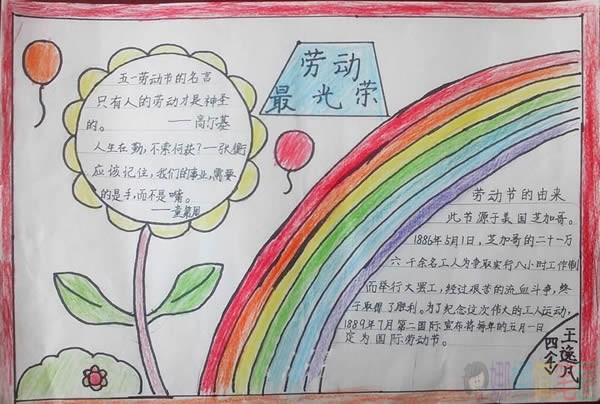 劳动
最光荣
五一劳动节的名言
只有人的劳动才是神圣
的。
——高尔基
人生在勤，不索何获？—张衡
应该记住，我们的事业，需要
的是手，而不是嘴。
——童第周
劳动节的由来
此节源于美国芝加哥。
1886年5月1日，芝加哥的二十一万
六千余名工人为争取实行八小时工作制
而举行大罢工，经过艰苦的流血斗争，终
于取得了胜利。为了纪念这次伟大的工人运动，
1889年7月第二国际宣布将每年的五月一日
定为国际劳动节。
王逸凡